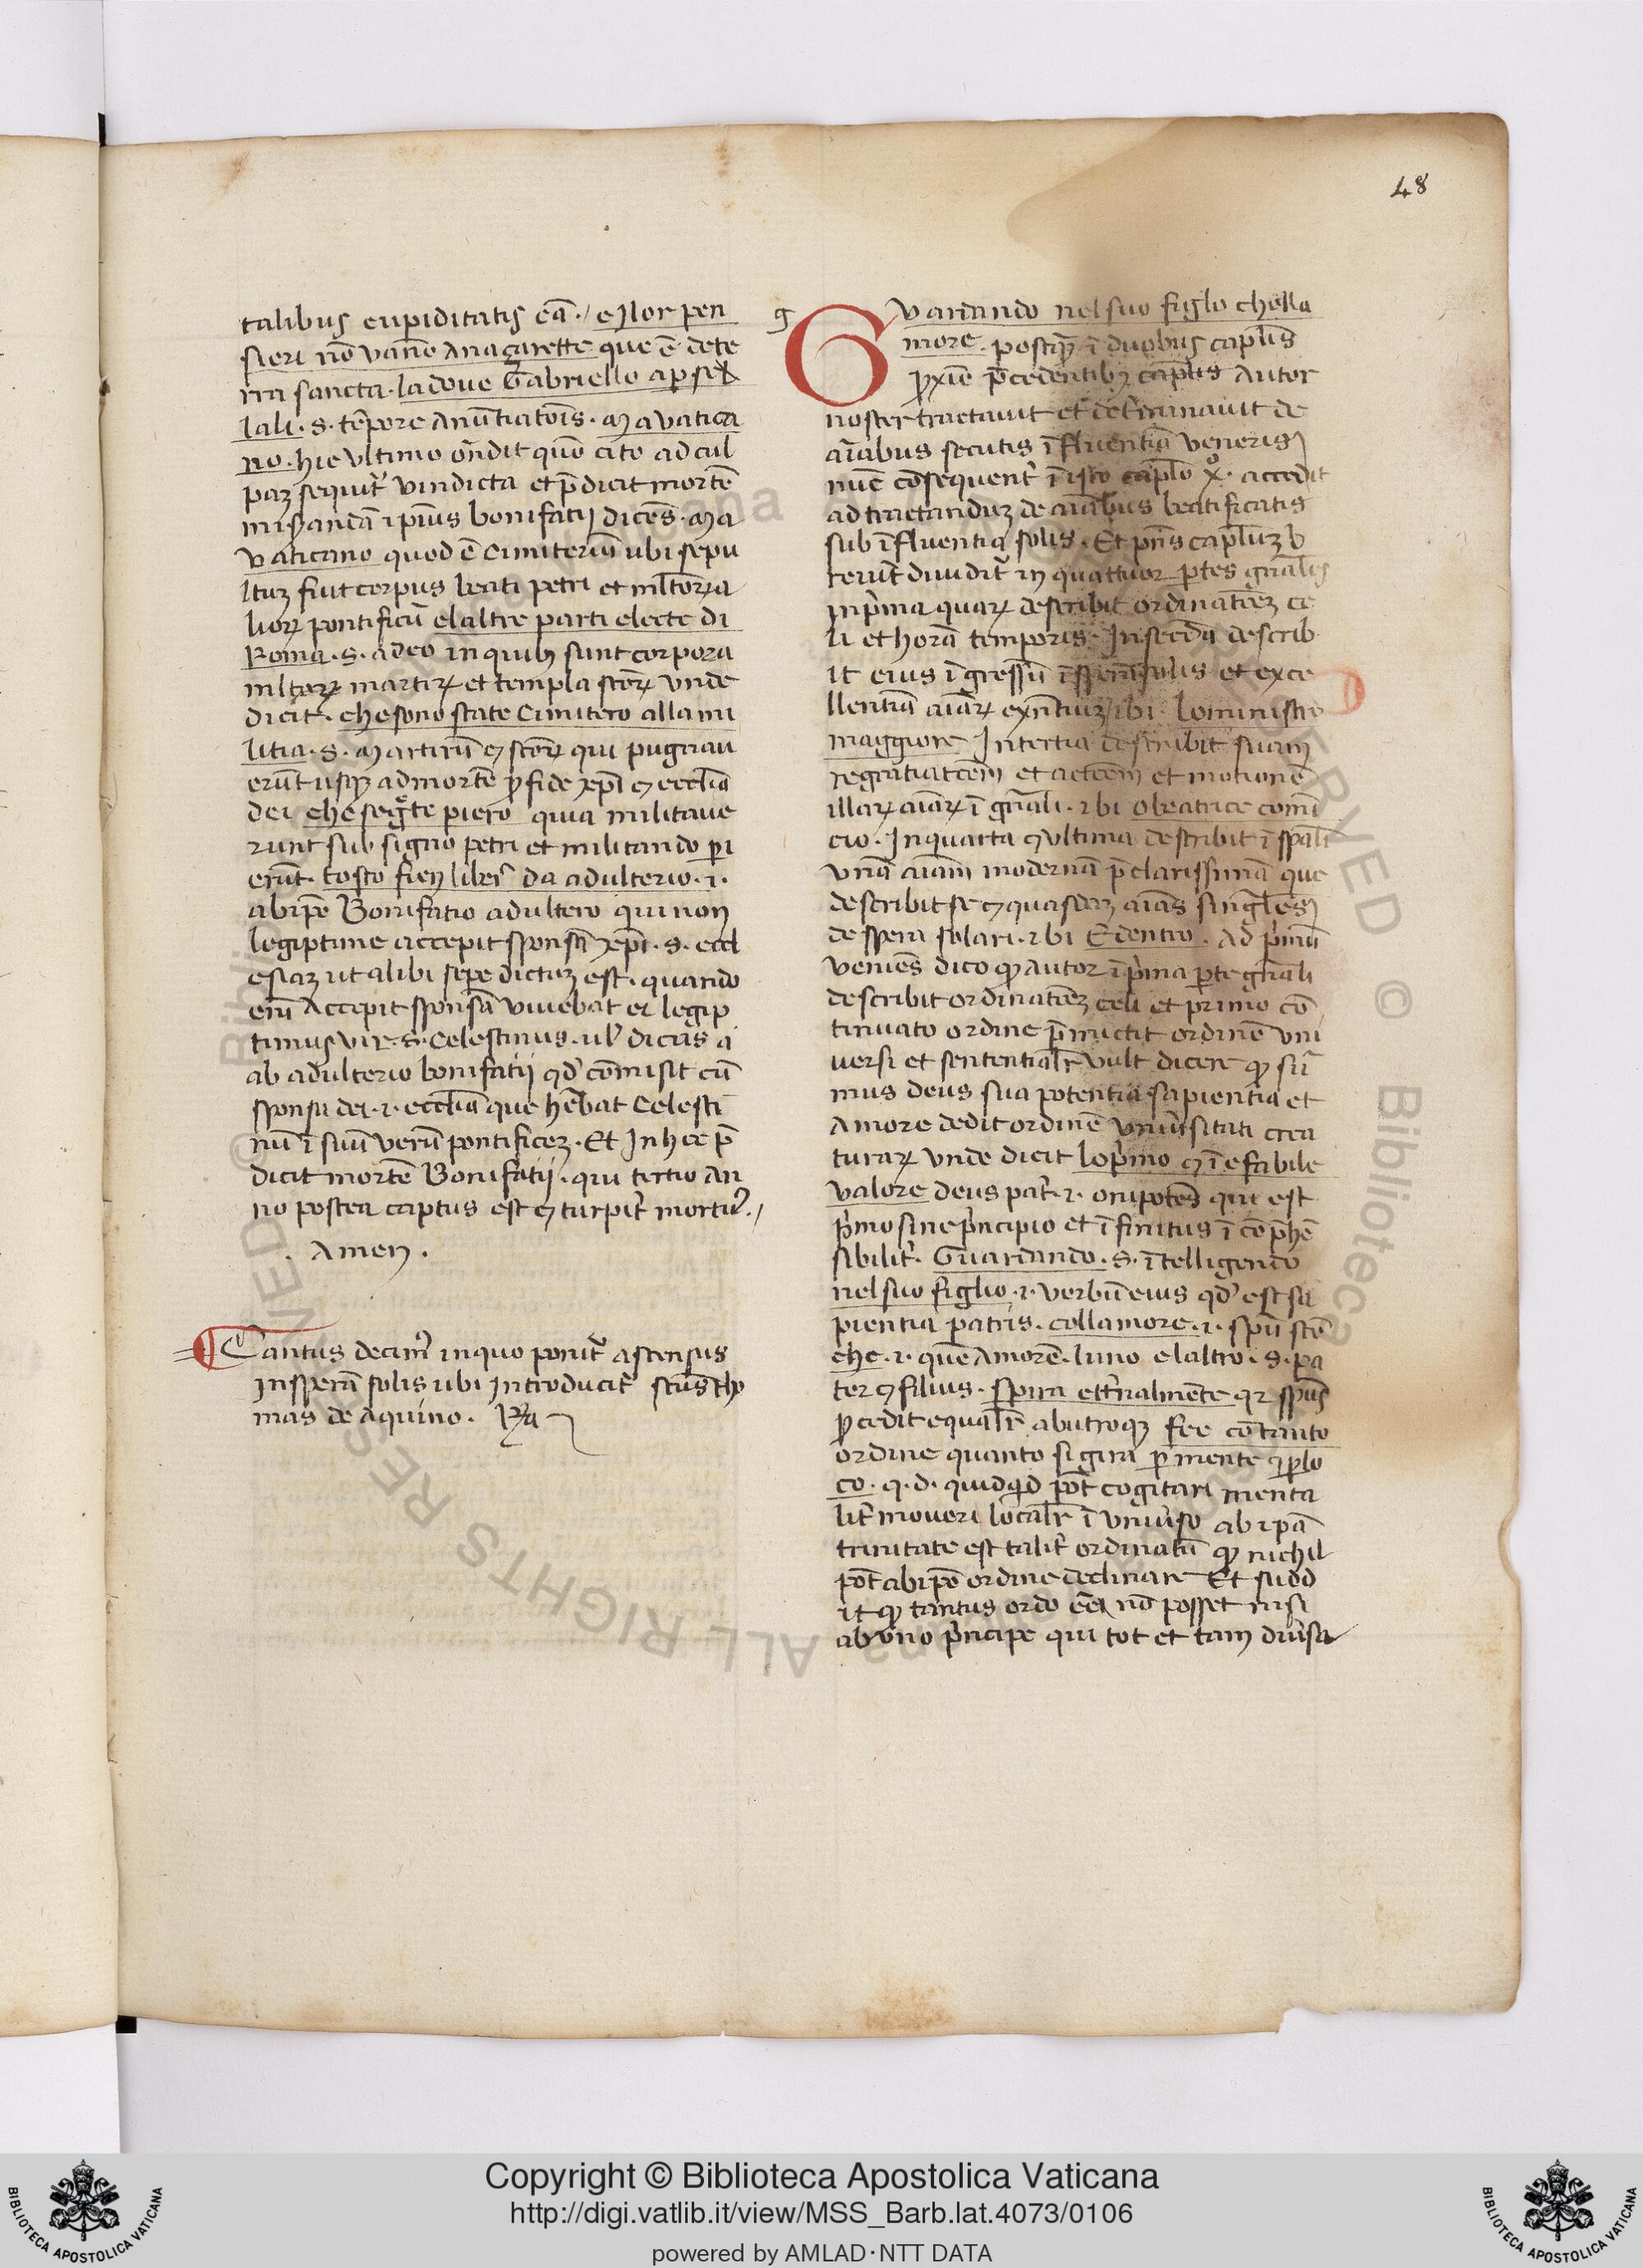 48
talibus cupiditatis cā · e lor pen
sieri nō vāno a naçarette que ē de te
rra sancta · la dove Gabriello aperse
lali · s· tēpore anūtiatoīs · Ma vatica
no · hic ultimo on̄dit quō cito ad cul
paʒ sequit̄ vindicta et p̄dicit mortē
ip̄ius bonifatij dicēs · Ma
vaticano quod ē cimiteriū ubi sepu
ltuʒ fuit corpus beati petri et ml̄toꝝ a
lioꝝ pontificū e laltre parti electe di
Roma · s· adeo in quibꝫ sunt corpora
ml̄toꝝ martiꝝ et templa sc̄oꝝ unde
dicit · che sono state cimitero alla mi
litia · s· martirū ⁊ sc̄oꝝ qui pugnau
erūt usqꝫ ad mortē ꝓ fide xp̄i ⁊ eccl̄ia
dei che seg̃te piero quia militaue
runt sub signo petri et militando ꝑi
erūt · tosto fien liber̄ da adulterio · i·
ab ip̄o Bonifatio adultero qui non
legiptime accepit sponsā xp̄i · s· eccl
esiaʒ ut alibi sepe dictuʒ est · quando
em̄ accepit sponsā vivebat ei legip
timus vir · s· Celestinus · ul̄ dicas
ab adulterio bonifatij qđ cōmisit cū
sponsa dei · i· eccl̄ia que hēbat Celesti
nū ī suū verū pontificeʒ · Et in hoc p̄
dicit mortē Bonifatij · qui tertio an
no postea captus est ⁊ turpit̄ mortuꝰ ·
· Amen ·
Cantus decimꝰ in quo ponit̄ ascensus
in sperā solis ubi introducit̄ sc̄us tho
mas de aquino · R̄a
g
Guardando nel suo figlo chella
more · postqꝫ ī duobus capl̄is
ꝓxīe p̄cedentibꝫ capl̄is autor
noster tractavit et det̄minavit de
aīabus secutis īfluentiā veneris
nūc cōsequent̄ ī isto capl̄o xº · accedit
ad tractanduʒ de aīabus beatificatis
sub īfluentia solis · Et pn̄s capl̄uʒ b
reuit̄ diuidit̄ in quattuor ꝑtes gn̄ales
in p̄ma quaꝝ describit ordinat̄oeʒ ce
li et horā temporis · In sec̄da describ
it eius īgressū ī sperā solis et exce
llentiā aīaꝝ exn̄tiuʒ ibi · Lo ministro
maggiore In tertia describit suam
regratiatōem et actōem et motionē
illaꝝ aīaꝝ ī gn̄ali · ibi o beatrice comī
cio · In quarta ⁊ ultima describit ī spāli
unā aīam modernā p̄clarissimā que
describit se ⁊ quasdaʒ aīas singl̄es
de spera solari · ibi E dentro · Ad p̄mū
veniēs dico ꝙ autor ī p̄ma ꝑte gn̄ali
describit ordinat̄oeʒ celi et primo cō
tinuato ordine p̄mictit ordinē uni
versi et sententialr̄ vult dicere ꝙ sū
mus deus sua potentia sapientia et
amore dedit ordinē univ̄sitati crea
turaꝝ unde dicit lo p̄mo ⁊ īefabile
valore deus pat̄ · i· om̄ipotēs qui est
p̄mo sine p̄ncipio et īfinitus īcōp̄hē
sibilit̄ · Guardando · s· ītelligendo
nel suo figlio · i· verbū eius qđ est sa
pientia patris · collamore · i· spū scō
che · i· quē amorē · luno e laltro · s· pa
ter ⁊ filius · spira ett̄nalmēte qꝛ spūs
ꝓcedit equalr̄ ab utroqꝫ fee cōtanto
ordine quanto si gira ꝑ mente ⁊ ꝑ lo
co · q· d· quidqđ pōt cogitari menta
lit̄ moveri localr̄ ī univ̄so ab ip̄a
trinitate est talit̄ ordinatū ꝙ nichil
pōt ab ip̄o ordine declinare Et subd
it ꝙ tantus ordo eē nō posset nisi
ab uno p̄ncipe qui tot et tam div̄sa
Copyright © Biblioteca Apostolica Vaticana
http://digi.vatlib.it/view/MSS_Barb.lat.4073/0106
powered by AMLAD·NTT DATA
BIBLIOTECA APOSTOLICA VATICANA
BIBLIOTECA APOSTOLICA VATICANA